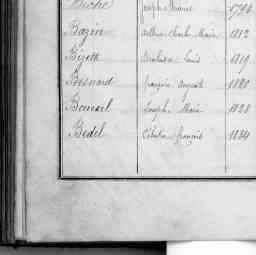 Buche Joseph Marie 1794
Bazin Arthur Charles Marie 1812
Bigott Louis 1819
Besnard François Auguste 1880
Joseph Marie 1828
Bedel Célestin François 1834